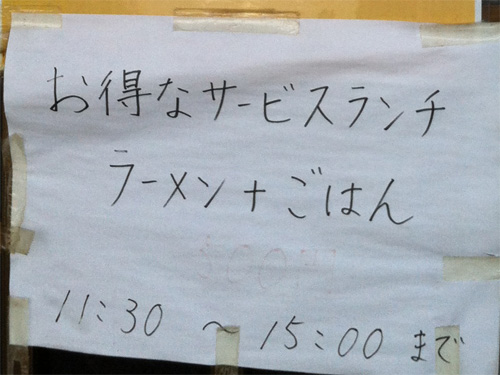 お得なサービスランチ
ラーメン+ごはん
11:30 ～ 15:00 まで